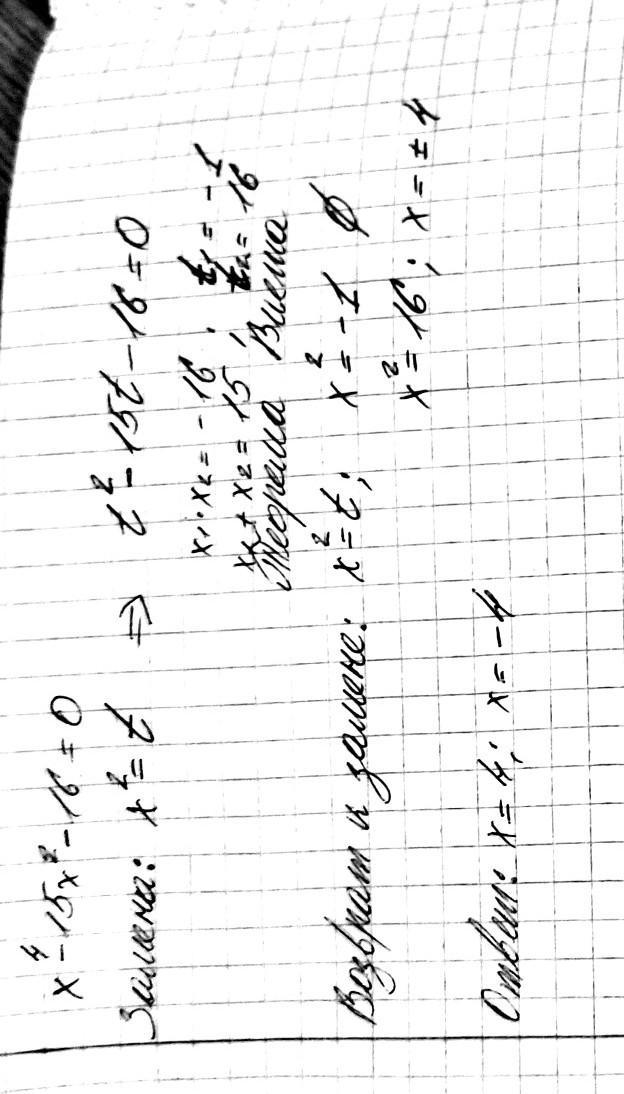 x⁴ - 15x² - 16 = 0
Замена: x² = t ⇒ t² - 15t - 16 = 0
x₁ · x₂ = -16 ; t₁ = -1
x₁ + x₂ = 15 ; t₂ = 16
Теорема Виета
Возврат к замене: x² = t; x² = -1 ∅
x² = 16; x = ± 4
Ответ: x = 4; x = -4